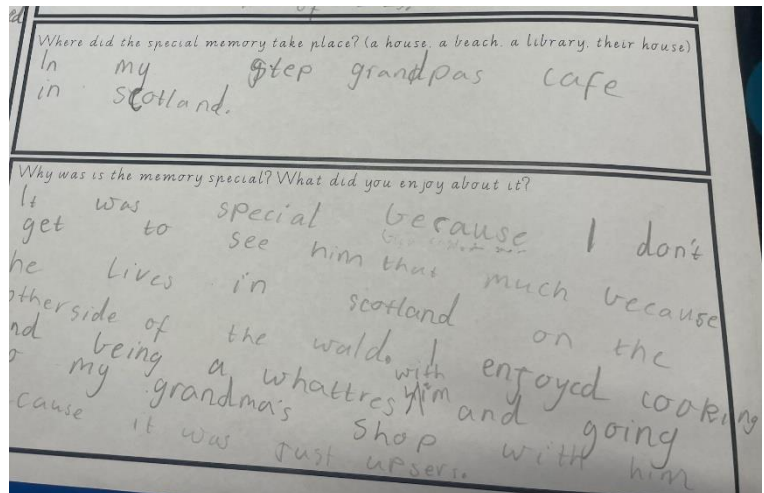 Where did the special memory take place? (a house, a beach, a library, their house)
In my step grandpas cafe
in scotland.
Why was is the memory special? What did you enjoy about it?
It was special because I don't
get to see him that much because
he lives in scotland on the
otherside of the wald. I enjoyed cooking
nd being a whattres with him and going
my grandma's shop with him
cause it was just upsers.